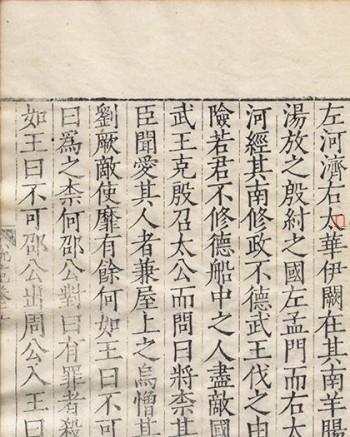 左河濟右太華伊闕在其南羊腸
湯放之殷紂之國左孟門而右太
河經其南修政不德武王伐之由
險若君不修德船中之人盡敵國
武王克殷召太公而問曰將柰其
臣聞愛其人者兼屋上之烏憎其
劉厥敵使靡有餘何如王曰不可
曰為之柰何邵公對曰有罪者殺
如王曰不可邵公出周公入王曰